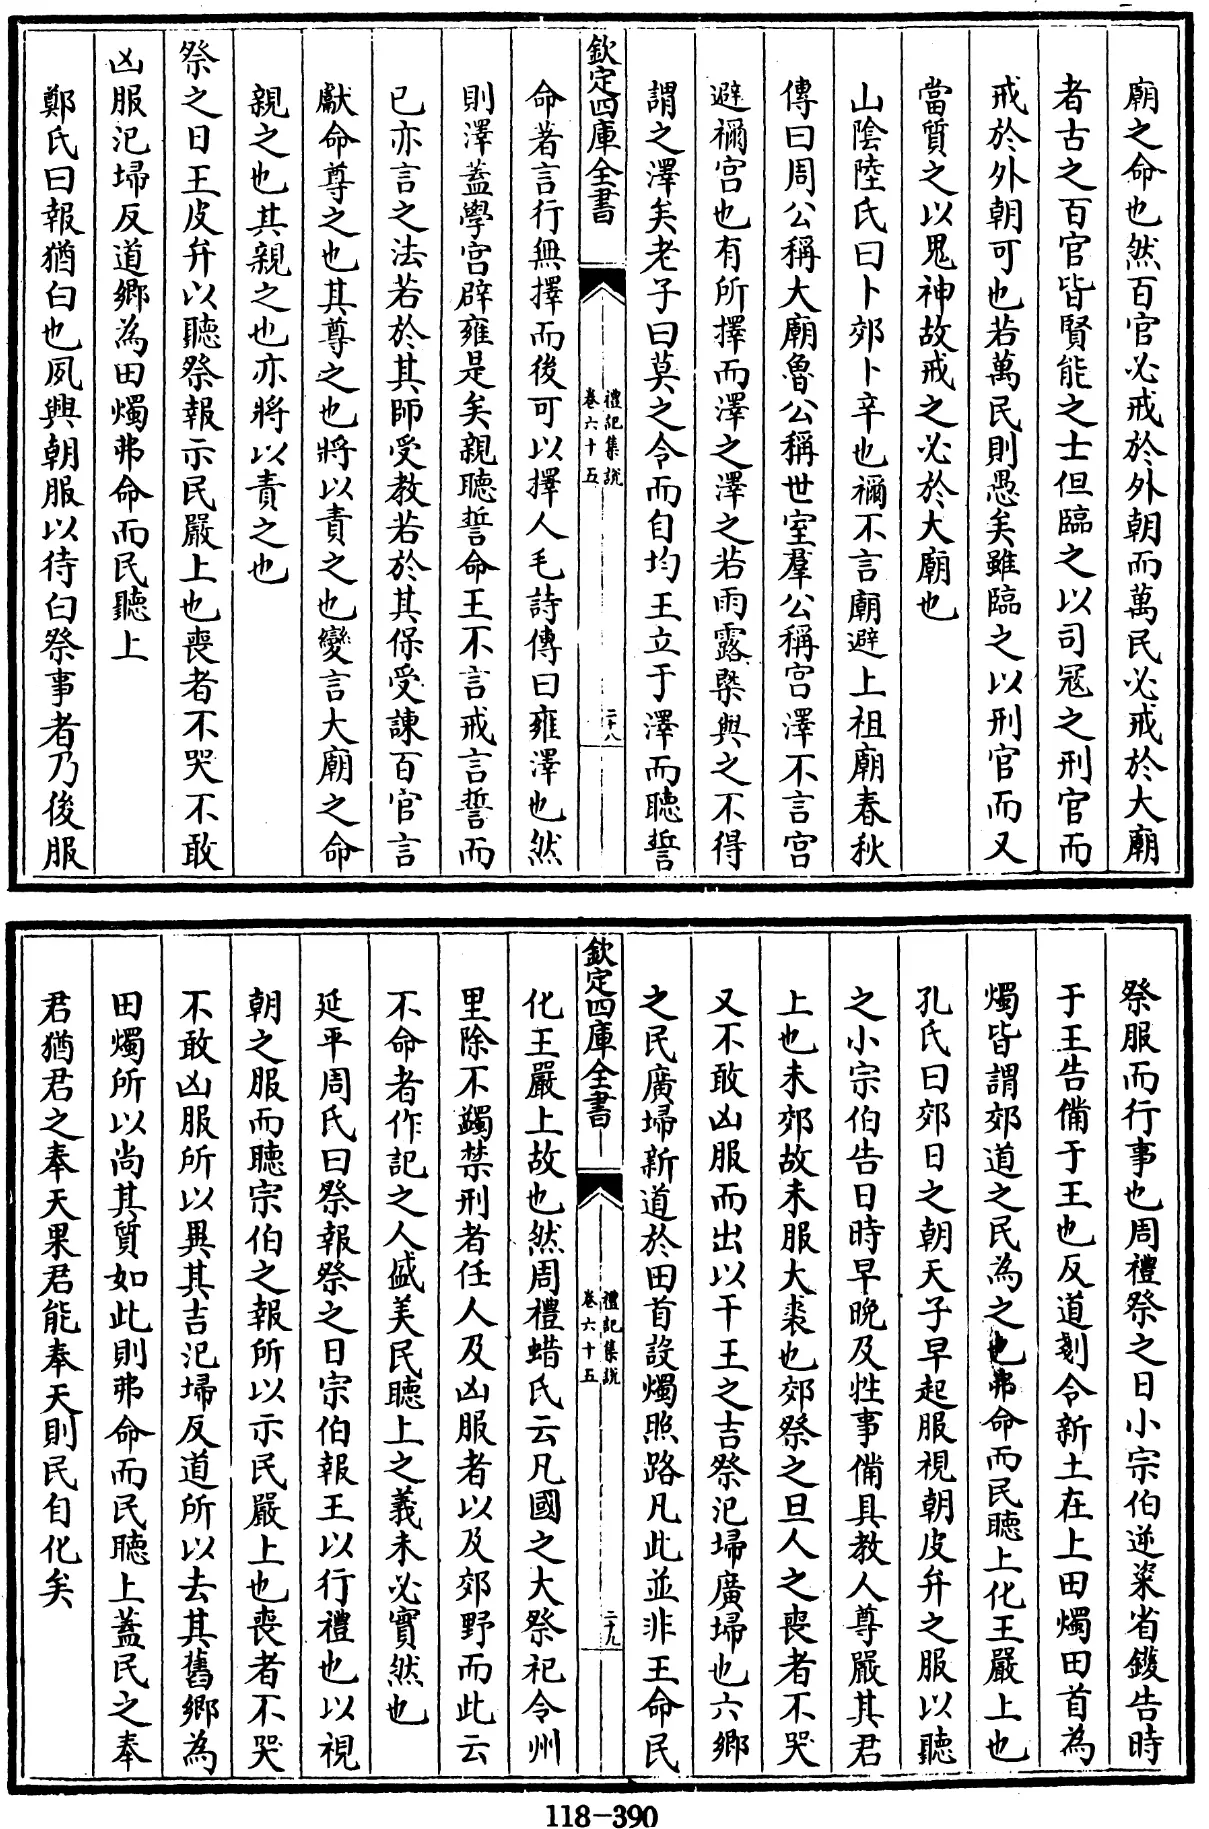 廟之命也然百官必戒於外朝而萬民必戒於大廟
者古之百官皆賢能之士但臨之以司冦之刑官而
戒於外朝可也若萬民則愚矣雖臨之以刑官而又
當質之以鬼神故戒之必於大廟也
山陰陸氏曰卜郊卜辛也禰不言廟避上祖廟春秋
傳曰周公稱大廟魯公稱世室羣公稱宫澤不言宫
避禰宫也有所擇而澤之澤之若雨露槩與之不得
謂之澤矣老子曰莫之令而自均王立于澤而聽誓
欽定四庫全書
禮記集説
卷六十五
二十八
命著言行無擇而後可以擇人毛詩傳曰雍澤也然
則澤蓋學宫辟雍是矣親聴誓命王不言戒言誓而
已亦言之法若於其師受教若於其保受諫百官言
獻命尊之也其尊之也將以責之也變言大廟之命
親之也其親之也亦將以責之也
祭之日王皮弁以聽祭報示民嚴上也喪者不哭不敢
凶服氾埽反道鄉為田燭弗命而民聽上
鄭氏曰報猶白也夙興朝服以待白祭事者乃後服
祭服而行事也周禮祭之日小宗伯逆粢省鑊告時
于王告備于王也反道剗令新土在上田燭田首為
燭皆謂郊道之民為之也弗命而民聴上化王嚴上也
孔氏曰郊日之朝天子早起服視朝皮弁之服以聽
之小宗伯告日時早晚及牲事備具教人尊嚴其君
上也未郊故未服大裘也郊祭之旦人之喪者不哭
又不敢凶服而出以干王之吉祭氾埽廣埽也六鄉
之民廣埽新道於田首設燭照路凡此並非王命民
欽定四庫全書
禮記集説
卷六十五
二十九
化王嚴上故也然周禮蜡氏云凡國之大祭祀令州
里除不蠲禁刑者任人及凶服者以及郊野而此云
不命者作記之人盛美民聴上之義未必實然也
延平周氏曰祭報祭之日宗伯報王以行禮也以視
朝之服而聴宗伯之報所以示民嚴上也喪者不哭
不敢凶服所以異其吉氾埽反道所以去其舊鄉為
田燭所以尚其質如此則弗命而民聴上蓋民之奉
君猶君之奉天果君能奉天則民自化矣
118-390